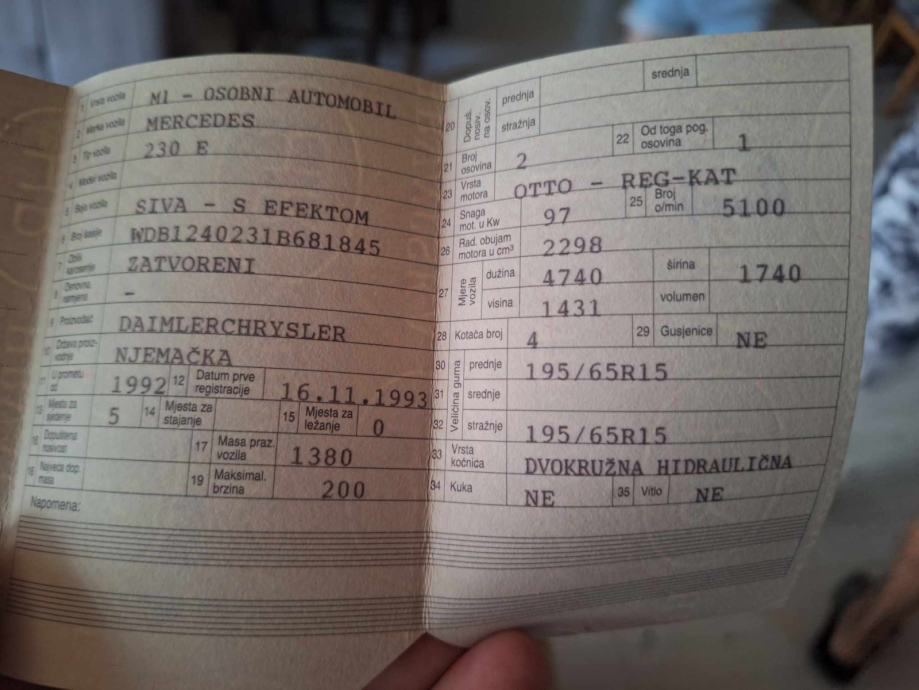 1 Vrsta vozila M1 - OSOBNI AUTOMOBIL
2 Marka vozila MERCEDES
3 Tip vozila 230 E
4 Model vozila
5 Boja vozila SIVA - S EFEKTOM
6 Broj šasije WDB1240231B681845
7 Oblik karoserije ZATVORENI
8 Osnovna namjena -
9 Proizvođač DAIMLERCHRYSLER
10 Država proizvodnje NJEMAČKA
11 U prometu od 1992 12 Datum prve registracije 16.11.1993
13 Mjesta za sjedenje 5 14 Mjesta za stajanje 15 Mjesta za ležanje 0
16 Dopuštena nosivost 17 Masa praz. vozila 1380
18 Najveća dop. masa 19 Maksimal. brzina 200
Napomena:
20 Dopuš. nosiv. na osov. prednja srednja
stražnja
21 Broj osovina 2 22 Od toga pog. osovina 1
23 Vrsta motora OTTO - REG-KAT
24 Snaga mot. u Kw 97 25 Broj o/min 5100
26 Rad. obujam motora u cm³ 2298
27 Mjere vozila dužina 4740 širina 1740
visina 1431 volumen
28 Kotača broj 4 29 Gusjenice NE
30 Veličina guma prednje 195/65R15
31 srednje
32 stražnje 195/65R15
33 Vrsta kočnica DVOKRUŽNA HIDRAULIČNA
34 Kuka NE 35 Vitlo NE